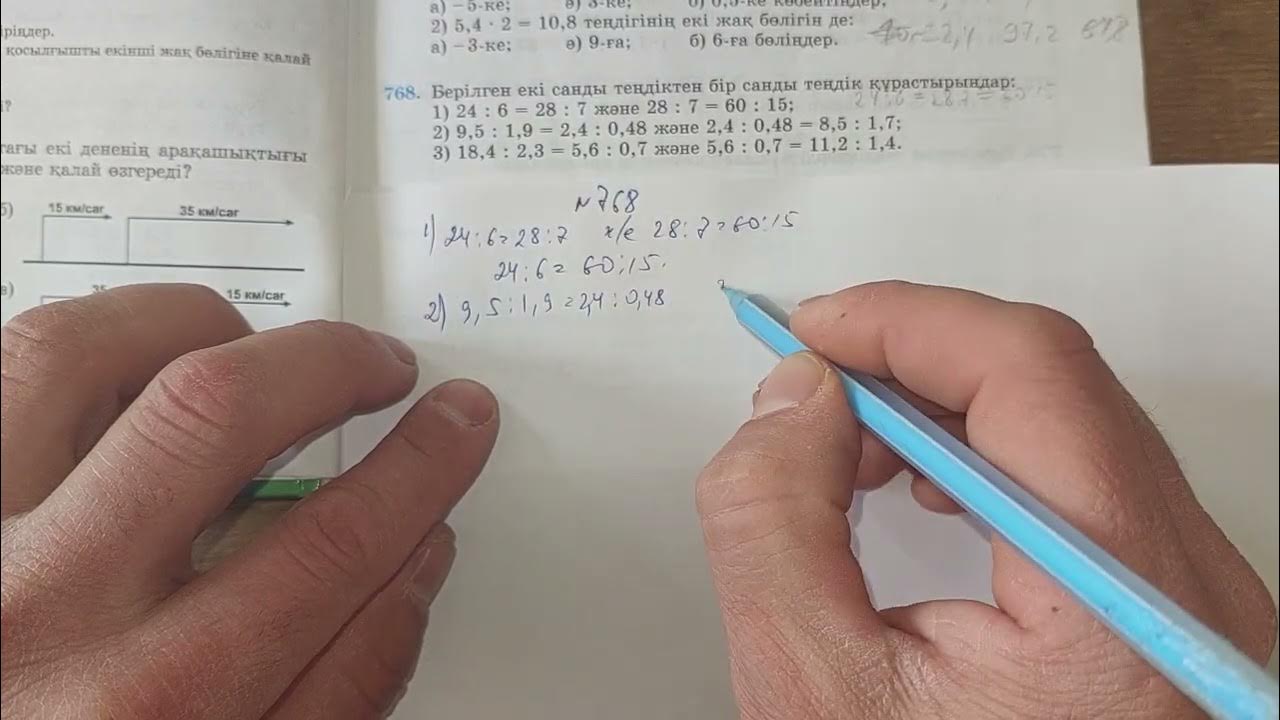 а) −5-ке; ә) 3-ке; б) 0,5-ке көбейтіңдер,
2) 5,4 · 2 = 10,8 теңдігінің екі жақ бөлігін де:
а) −3-ке; ә) 9-ға; б) 6-ға бөліңдер.
768. Берілген екі санды теңдіктен бір санды теңдік құрастырыңдар:
1) 24 : 6 = 28 : 7 және 28 : 7 = 60 : 15;
2) 9,5 : 1,9 = 2,4 : 0,48 және 2,4 : 0,48 = 8,5 : 1,7;
3) 18,4 : 2,3 = 5,6 : 0,7 және 5,6 : 0,7 = 11,2 : 1,4.
қосылғышты екінші жақ бөлігіне қалай
екі дененің арақашықтығы
және қалай өзгереді?
б) 15 км/сағ 35 км/сағ
в) 35 15 км/сағ
№768
1) 24:6=28:7 ж/е 28:7=60:15
24:6=60:15.
2) 9,5:1,9=2,4:0,48